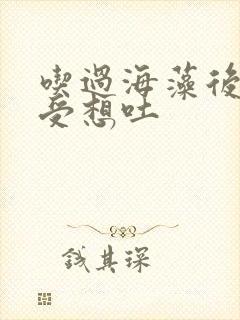 喫過海藻後
受想吐
钱其琛